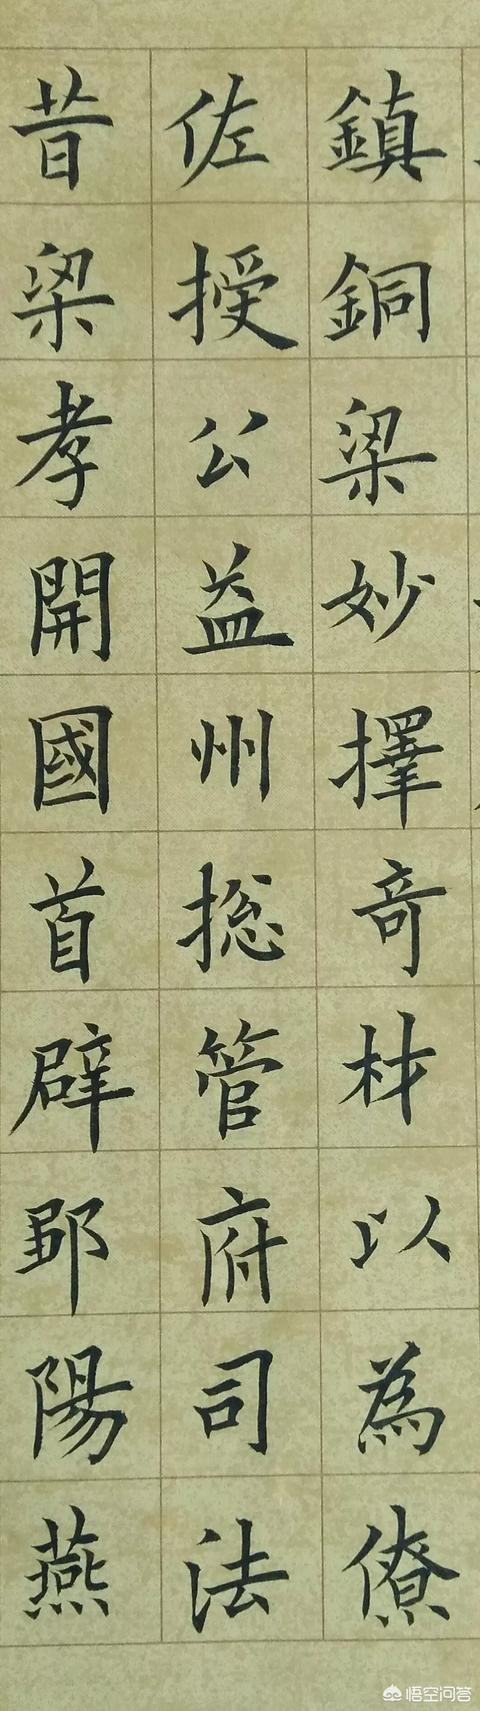 鎮銅梁妙擇奇材以為僚
佐授公益州捴管府司法
昔梁孝開國首辟鄒陽燕
悟空问答